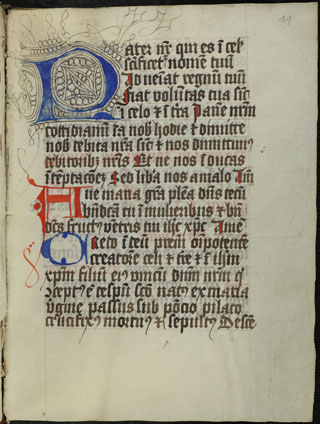 11
Pater nr̄ qui es ī cel̄
sc̄ificet᷑ nomen tuū
Adueiat regnū tuū
Fiat volūtas tua sic̄
ī celo ⁊ ī tr̄a Panē nrm̄
cottidianū da nob̄ hodie et dimitte
nob̄ debita nr̄a sic̄ ⁊ nos dimittim⁹
debitorib⁹ nr̄is Et ne nos īducas
ī temptacōeȝ Sed libā nos a malo Am̄
Aue maria grā plena dn̄s tecū
bn̄dicta tu ī mulierib⁹ et bn̄
dc̄s fruct⁹ ventris tui ih̄c xp̄c Ame
Credo ī deū prem̄ oīpotentē
creatorē celi ⁊ tr̄e ⁊ ī ih̄m
xp̄m filiū ei⁹ vnicū dn̄m nrm̄ q̇
ꝯcept⁹ ē de sp̄u sc̄o nat⁹ ex maria
v̄gine passus sub pōcio pilato
crucifix⁹ mortu⁹ ⁊ sepult⁹ Desce